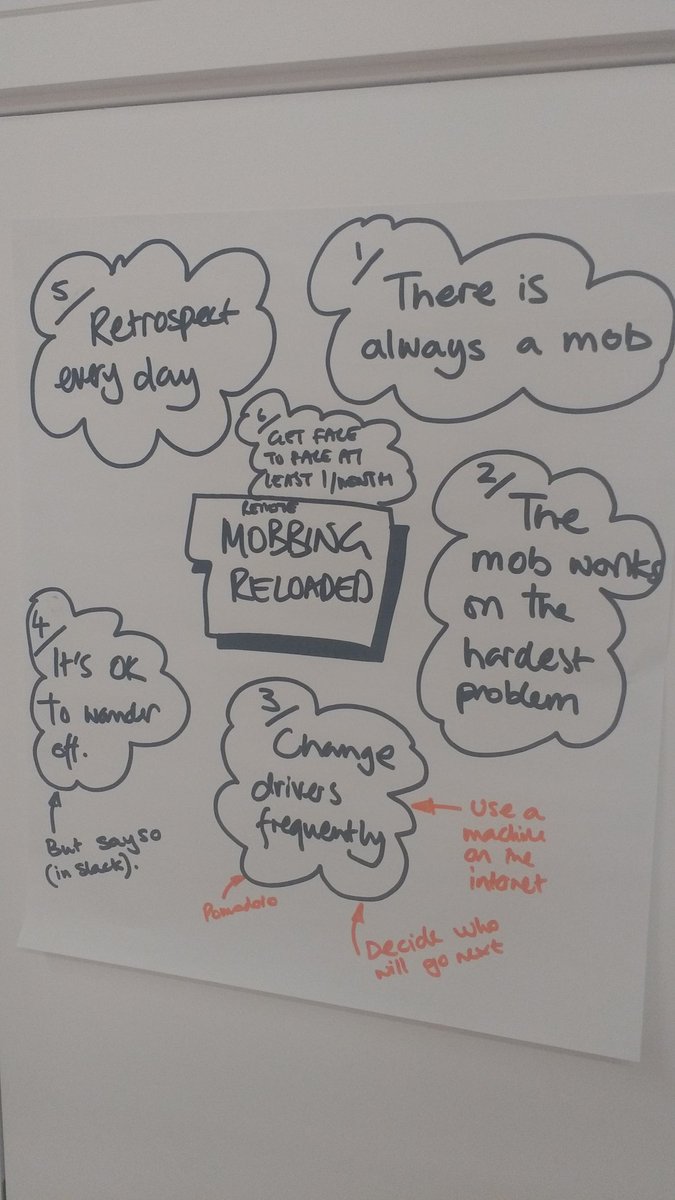 5/
Retrospect
every day
1/
There is
always a mob
6/
GET FACE
TO FACE AT
LEAST 1/MONTH
REMOTE
MOBBING
RELOADED
2/
The
mob works
on the
hardest
problem
4/
It's OK
to wander
off.
But say so
(in slack).
3/
Change
drivers
frequently
Use a
machine
on the
internet
Pomodoro
Decide who
will go next